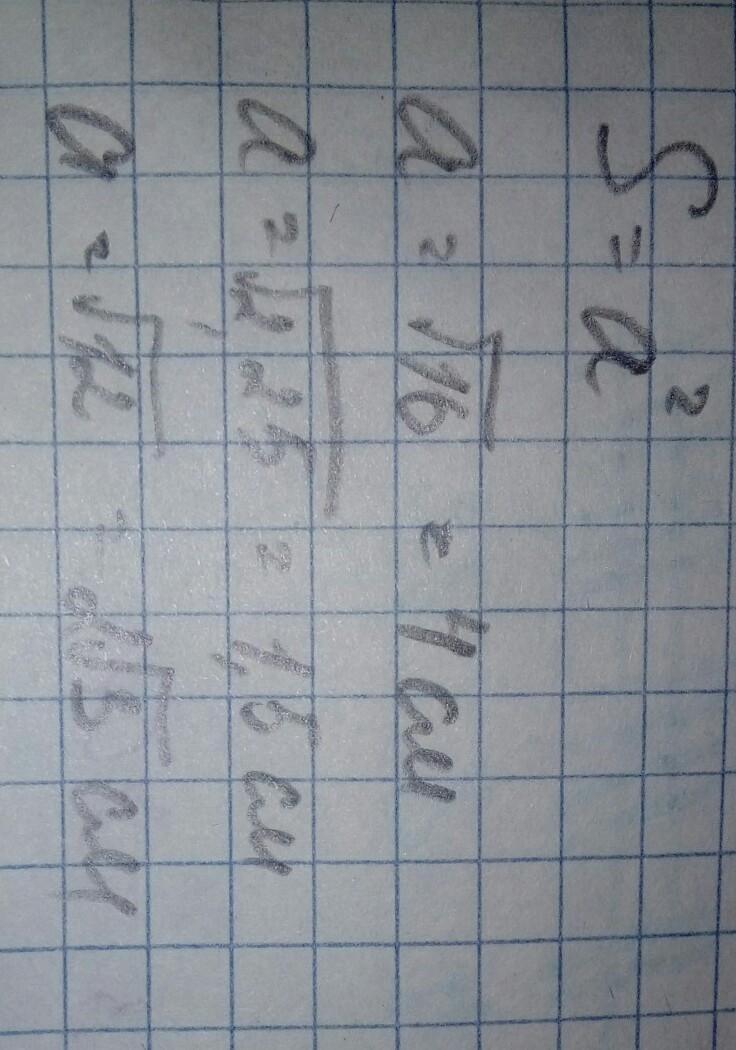 S = a²
a = √16 = 4 см
a = √2,25 = 1,5 см
a = √12 = 2√3 см